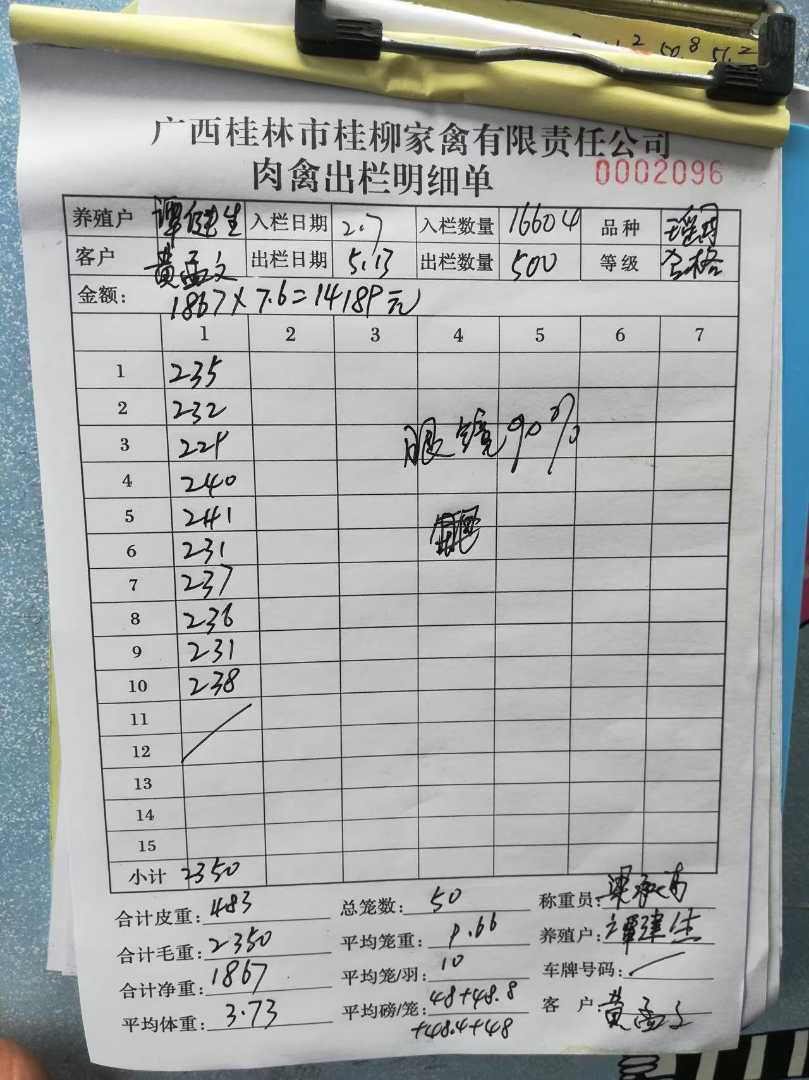 2 50 8 51.2
广西桂林市桂柳家禽有限责任公司
肉禽出栏明细单 0002096
养殖户 谭健生 入栏日期 2.7 入栏数量 16604 品种
客户 黄孟文 出栏日期 5.13 出栏数量 500 等级 合格
金额: 1867×7.6=14189元
1 2 3 4 5 6 7
1 235
2 232
3 229
4 240
5 241
6 231
7 237
8 236
9 231
10 238
11
12
13
14
15
眼镜90%
小计 2350
合计皮重: 483 总笼数: 50 称重员:
合计毛重: 2350 平均笼重: 9.66 养殖户: 谭健生
合计净重: 1867 平均笼/羽: 10 车牌号码:
平均体重: 3.73 平均磅/笼: 48+48.8 客 户 黄孟文
+48.4+48